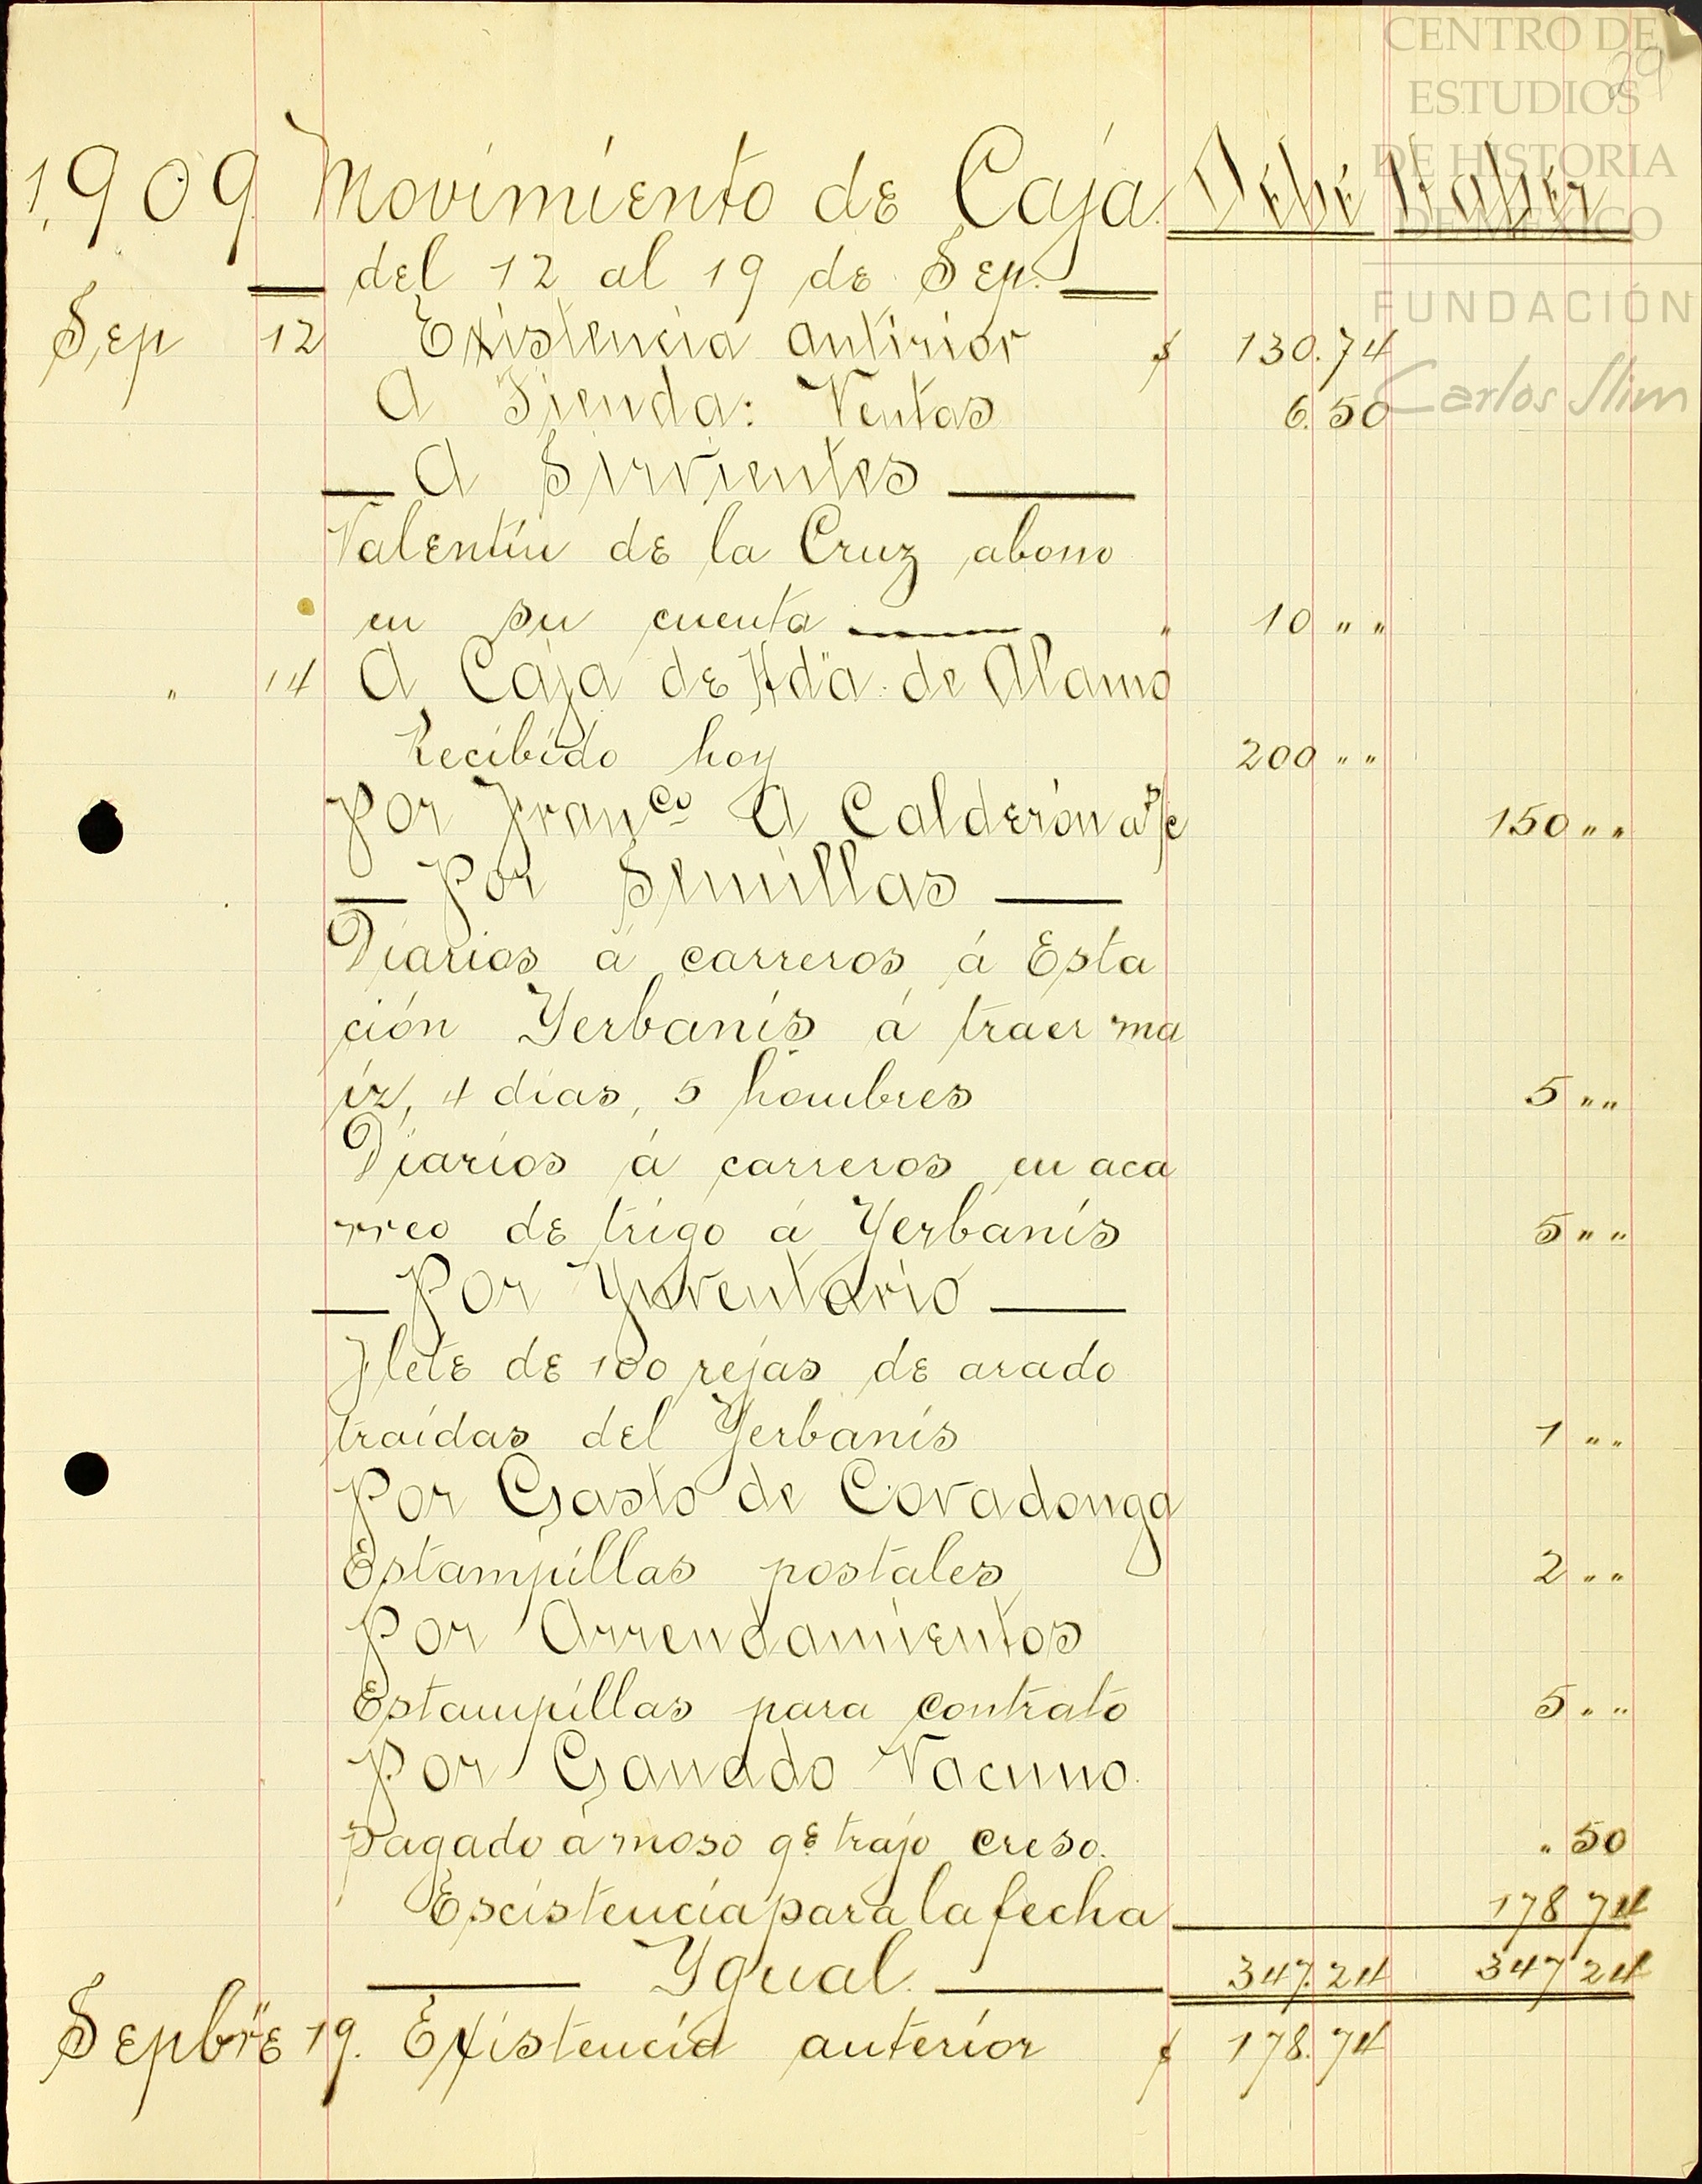 CENTRO DE
ESTUDIOS
DE HISTORIA
DE MÉXICO
FUNDACIÓN
Carlos Slim
29
1,909 Movimiento de Caja. Debe Haber
del 12 al 19 de Sep.
Sep 12 Existencia anterior $ 130.74
A Tienda: Ventas 6.50
A Sirvientes
Valentín de la Cruz abono
en su cuenta " 10 " "
" 14 A Caja de Hda. de Alamo
Recibido hoy 200 " "
Por Franco A Calderón a p/c 150 " "
Por Semillas
Diarios á carreros á Esta
ción Yerbanís á traer ma
íz, 4 días, 5 hombres 5 " "
Diarios á carreros en aca
rreo de trigo á Yerbanís 5 " "
Por Ynventario
Flete de 100 rejas de arado
traídas del Yerbanís 1 " "
Por Gasto de Covadonga
Estampillas postales 2 " "
Por Arrendamientos
Estampillas para contrato 5 " "
Por Ganado Vacuno.
pagado á moso qe trajo creso. " 50
Escistencia para la fecha 178 74
Ygual. 347.24 347 24
Sepbre 19. Existencia anterior $ 178.74